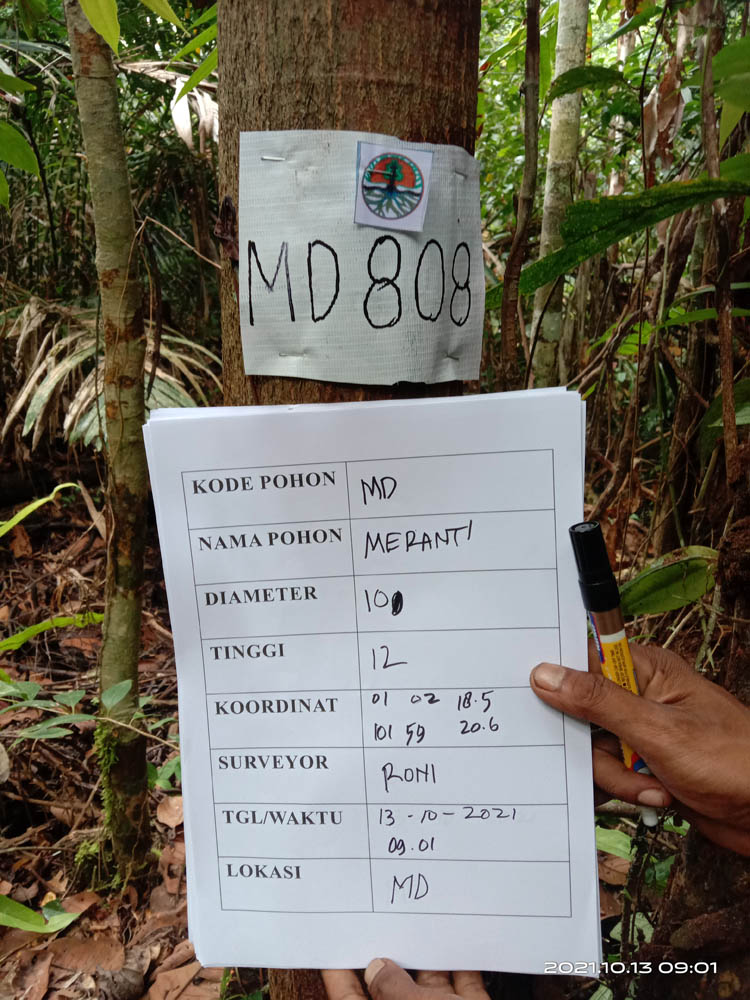 MD 808
KODE POHON MD
NAMA POHON MERANTI
DIAMETER
TINGGI 12
KOORDINAT 01 02 18.5
101 59 20.6
SURVEYOR RONI
TGL/WAKTU 13-10-2021
09.01
LOKASI MD
2021.10.13 09:01